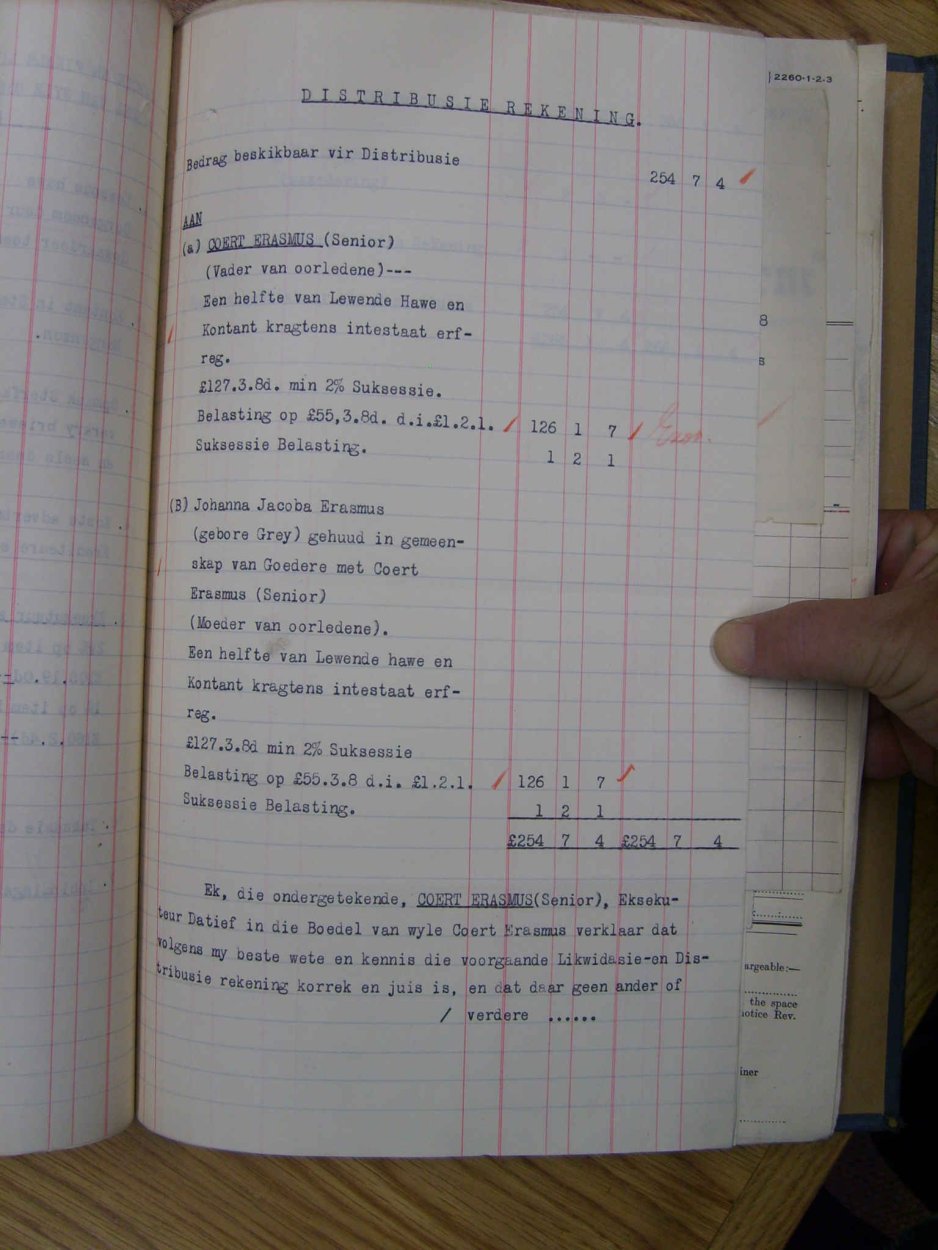 DISTRIBUSIE REKENING.
2260-1-2-3
Bedrag beskikbaar vir Distribusie 254 7 4
AAN
(a) COERT ERASMUS (Senior)
(Vader van oorledene)---
Een helfte van Lewende Hawe en
Kontant kragtens intestaat erf-
reg.
£127.3.8d. min 2% Suksessie.
Belasting op £55,3.8d. d.i.£1.2.1. 126 1 7
Suksessie Belasting. 1 2 1
(B) Johanna Jacoba Erasmus
(gebore Grey) gehuud in gemeen-
skap van Goedere met Coert
Erasmus (Senior)
(Moeder van oorledene).
Een helfte van Lewende hawe en
Kontant kragtens intestaat erf-
reg.
£127.3.8d min 2% Suksessie
Belasting op £55.3.8 d.i. £1.2.1. 126 1 7
Suksessie Belasting. 1 2 1
£254 7 4 £254 7 4
Ek, die ondergetekende, COERT ERASMUS(Senior), Ekseku-
teur Datief in die Boedel van wyle Coert Erasmus verklaar dat
volgens my beste wete en kennis die voorgaande Likwidasie-en Dis-
tribusie rekening korrek en juis is, en dat daar geen ander of
/ verdere ......
8
s
argeable:—
the space
notice Rev.
iner